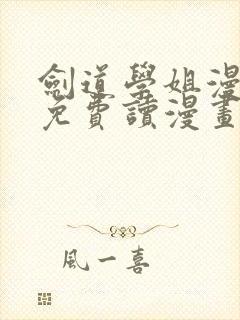 劍道學姐漫
免費讀漫畫
風一喜